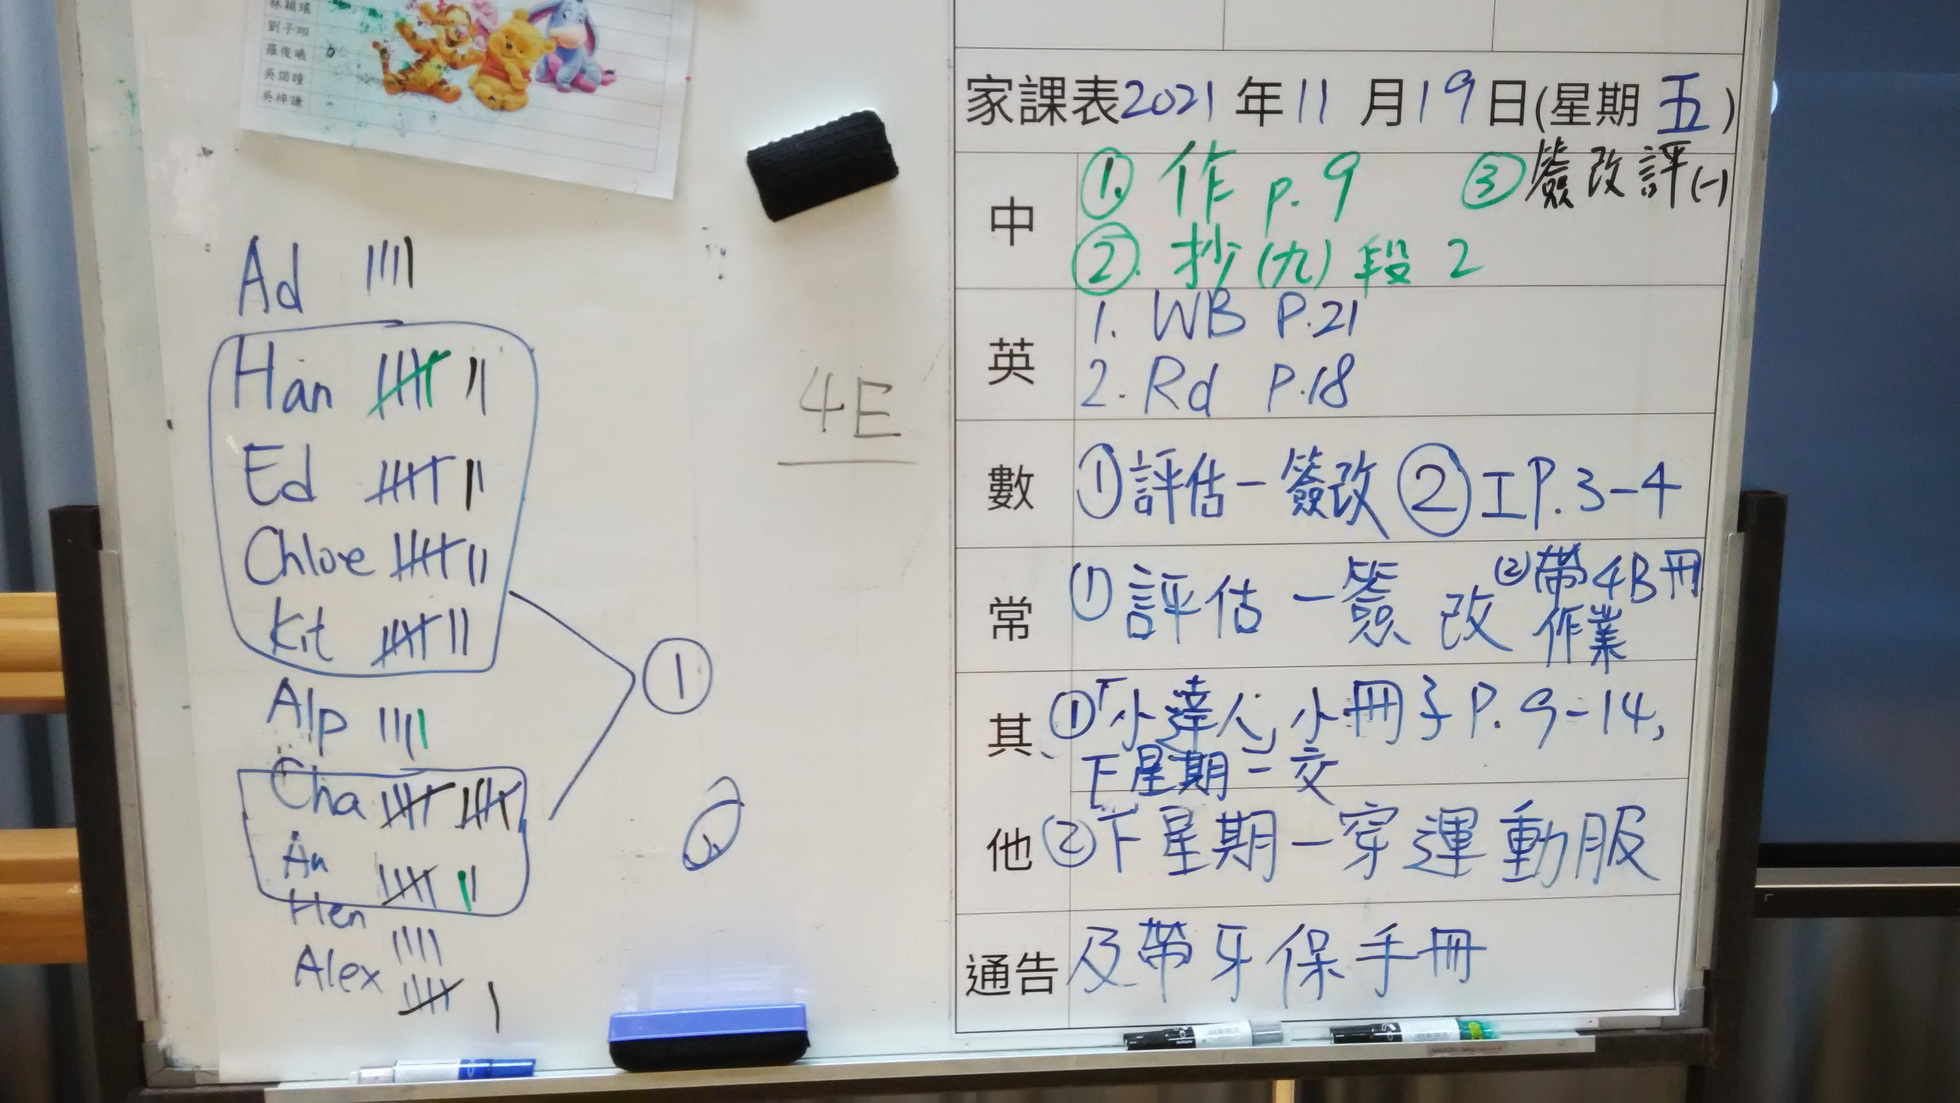 林穎瑤
劉子珝
羅俊曦
吳諾瞳
吳梓謙
Ad
Han
Ed
Chloe
Kit
Alp
Cha
An
Hen
Alex
①
②
4E
家課表2021年11月19日(星期五)
中
① 作 p.9 ③簽改評(一)
② 抄(九)段2
英
1. WB P.21
2. Rd P.18
數
①評估一簽改 ②工P.3-4
常
①評估一簽改 ②帶4B冊
作業
其他
①「小達人」小冊子P.9-14,
下星期二交
②下星期一穿運動服
通告
及帶牙保手冊